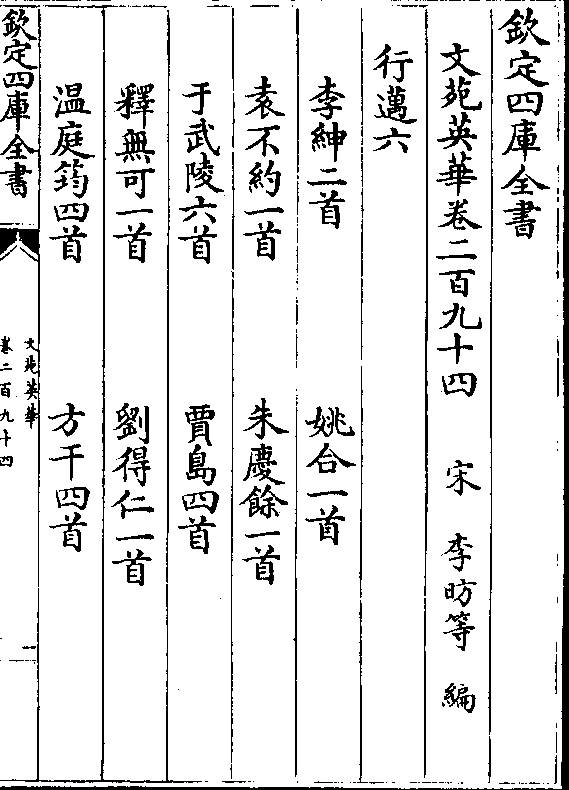 欽定四庫全書
文苑英華卷二百九十四　宋　李昉等　編
行邁六
李紳二首　姚合一首
袁不約一首　朱慶餘一首
于武陵六首　賈島四首
釋無可一首　劉得仁一首
温庭筠四首　方干四首
欽定四庫全書
文苑英華
卷二百九十四